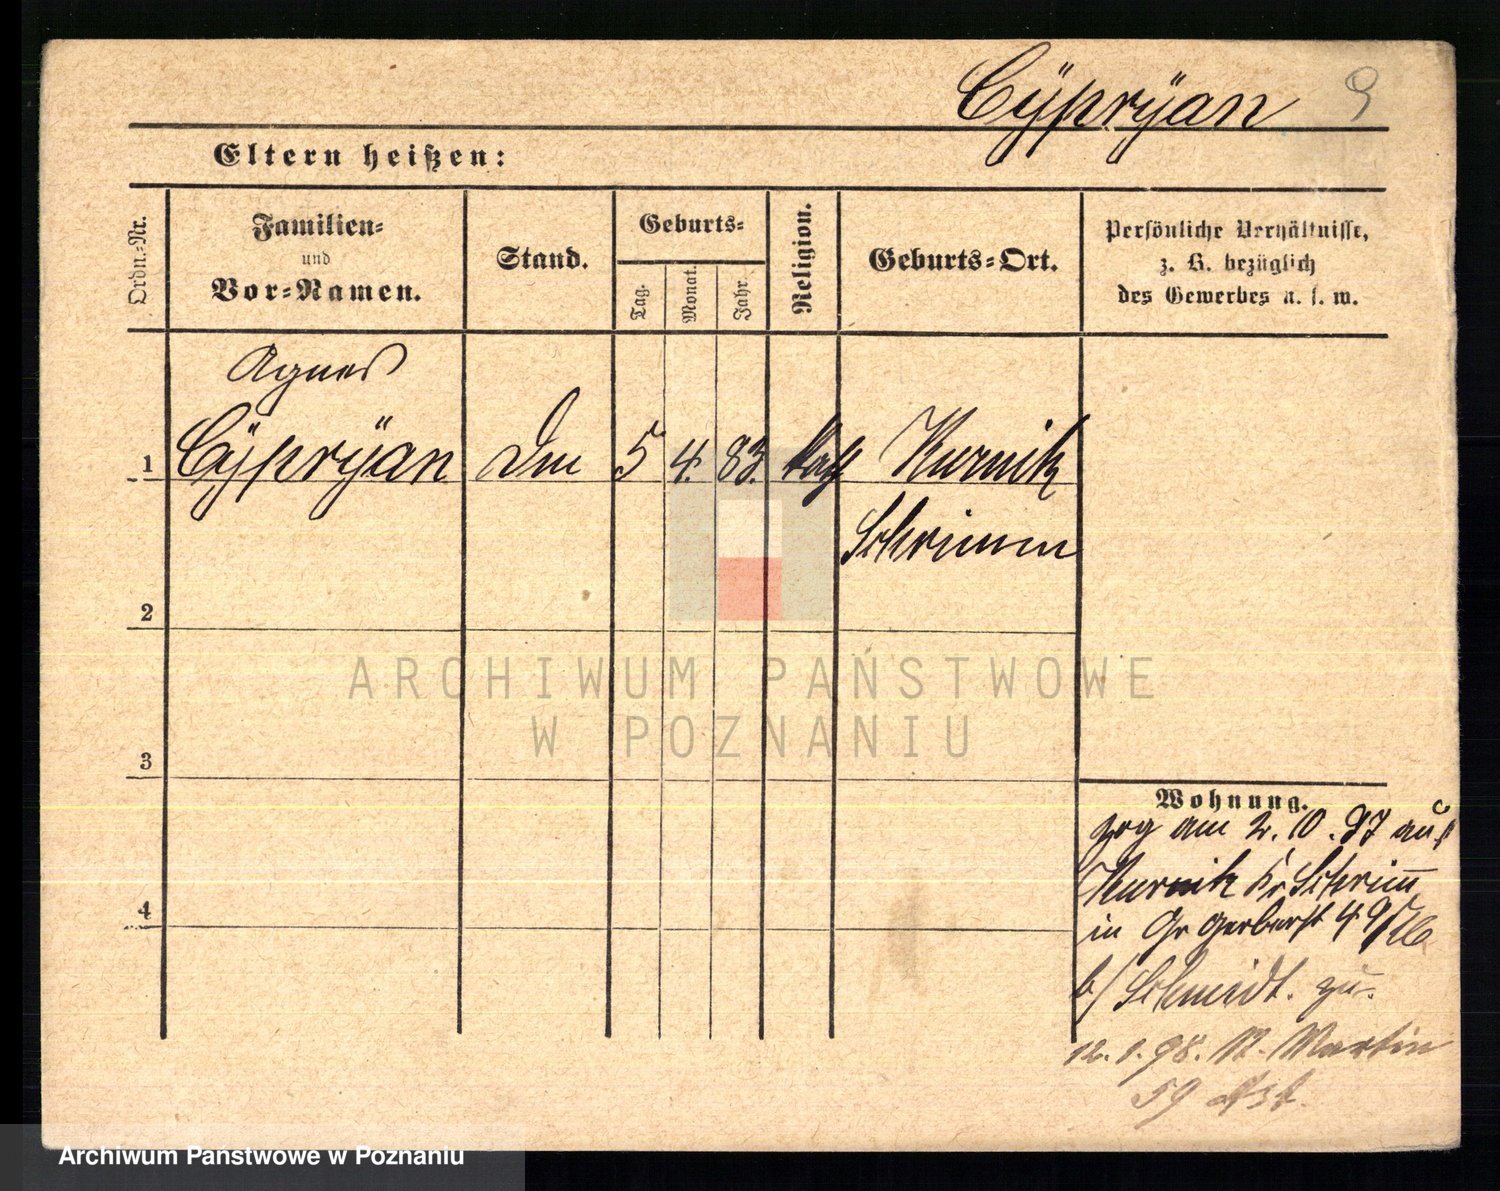 Cÿprÿan 9
Eltern heißen:
Ordn.-Nr.
Familien-
und
Vor-Namen.
Stand.
Geburts-
Tag.
Monat.
Jahr.
Religion.
Geburts-Ort.
Persönliche Verhältnisse,
z. B. bezüglich
des Gewerbes u. s. w.
Agnes
1 Cÿprÿan 5 4. 83. kath Kurnik
Schrimm
2
3
4
Wohnung.
zog am 2. 10. 97 aus
Kurnik Kr Schrimm
in Gr Gerberst 49
b/ Schmidt. zu.
12. 1. 98. St. Martin
59
ARCHIWUM PAŃSTWOWE
W POZNANIU
Archiwum Państwowe w Poznaniu